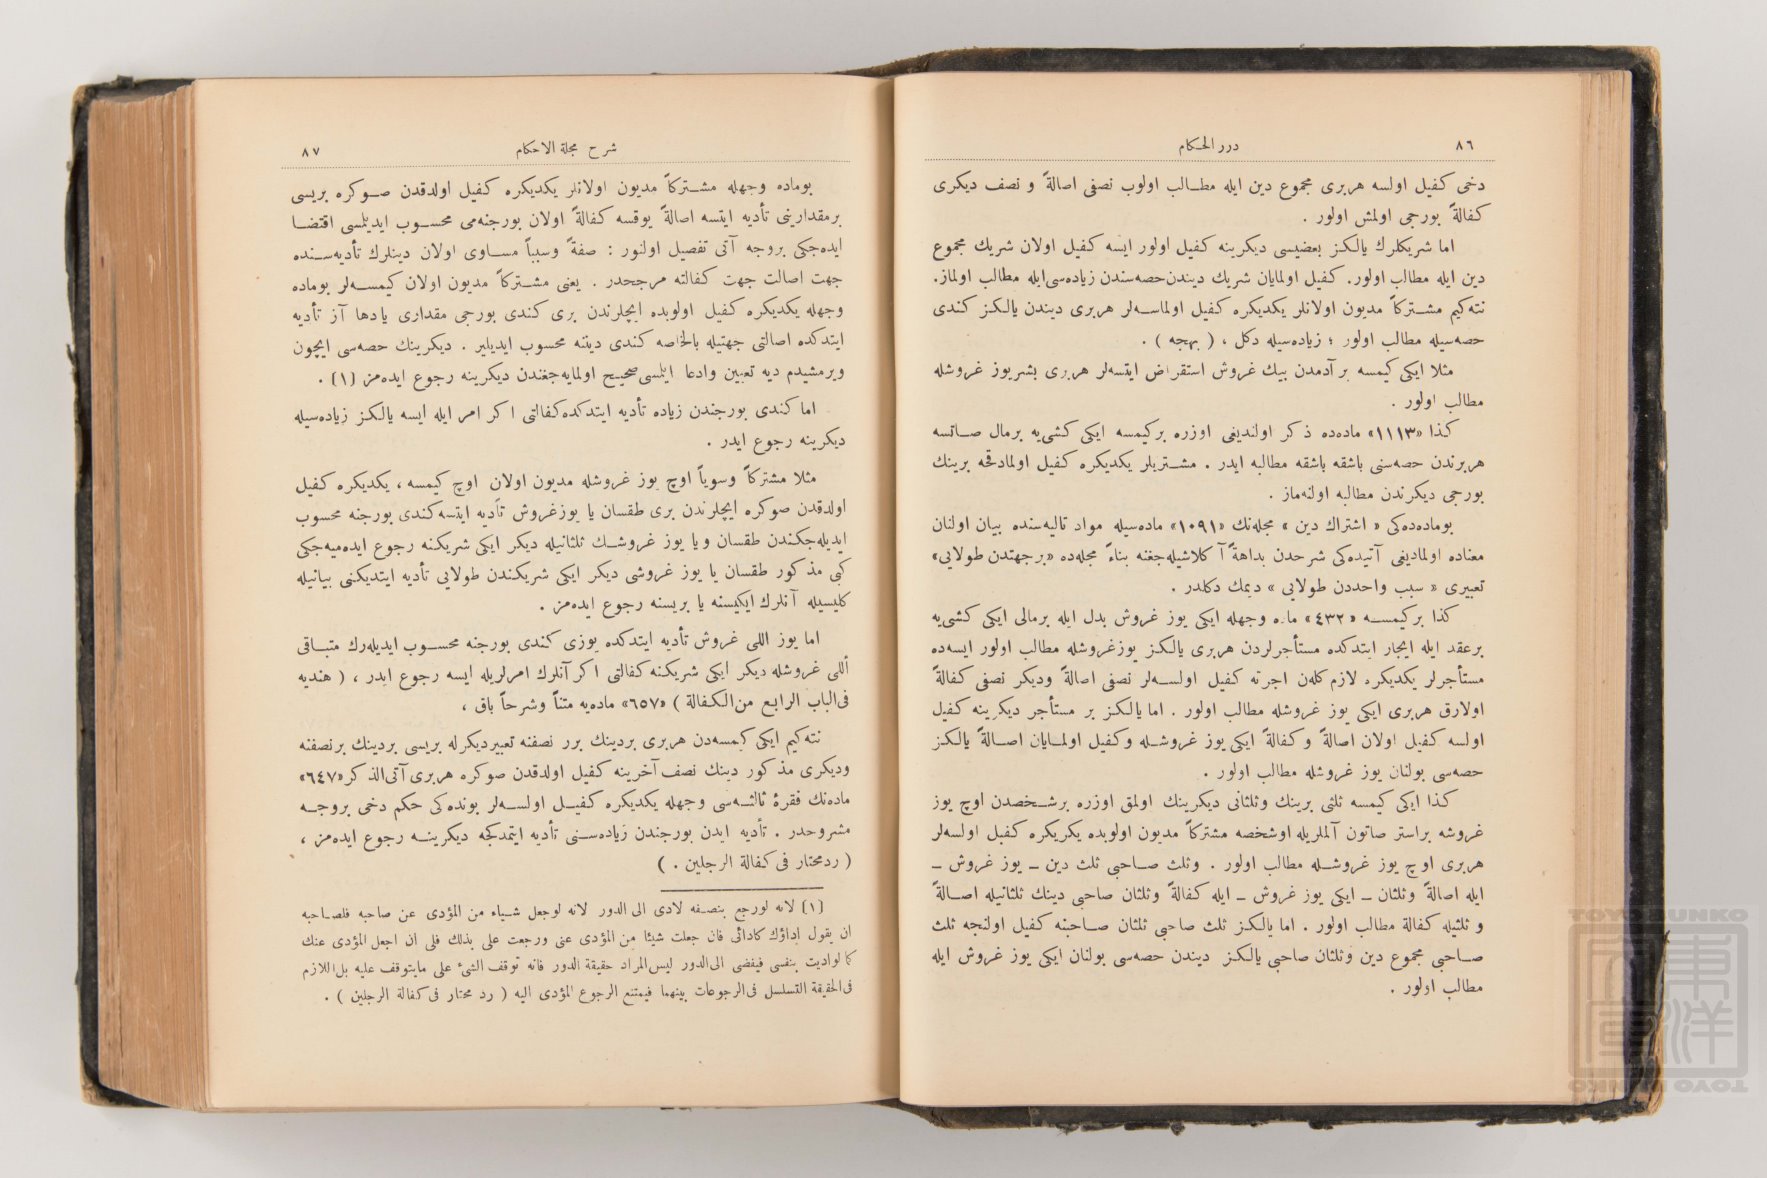 ٨٦
درر الحكام
دخى كفيل اولسه هربرى مجموع دين ايله مطالب اولوب نصفى اصالةً و نصف ديكرى
كفالةً بورجى اولمش اولور .
اما شريكلرك يالكز بعضيسى ديكرينه كفيل اولور ايسه كفيل اولان شريك مجموع
دين ايله مطالب اولور. كفيل اولمايان شريك ديندن حصه‌سندن زياده‌سى ايله مطالب اولماز.
نته‌كيم مشتركاً مديون اولانلر يكديكره كفيل اولماسه‌لر هربرى ديندن يالكز كندى
حصه‌سيله مطالب اولور ؛ زياده‌سيله دكل ، ( بهجه ) .
مثلا ايكى كيمسه بر آدمدن بيك غروش استقراض ايتسه‌لر هربرى بشريوز غروشله
مطالب اولور .
كذا «١١١٣» ماده‌ده ذكر اولنديغى اوزره بركيمسه ايكى كشى‌يه برمال صاتسه
هربرندن حصه‌سنى باشقه باشقه مطالبه ايدر . مشتريلر يكديكره كفيل اولمادقجه برينك
بورجى ديكرندن مطالبه اولنه‌ماز .
بوماده‌ده‌كى « اشتراك دين » مجله‌نك «١٠٩١» ماده‌سيله مواد تاليه‌سنده بيان اولنان
معناده اولماديغى آتيده‌كى شرحدن بداهةً آكلاشيله‌جغنه بناءً مجله‌ده «برجهتدن طولايى»
تعبيرى « سبب واحددن طولايى » ديمك دكلدر .
كذا بركيمسه «٤٣٢» ماده وجهله ايكى يوز غروش بدل ايله برمالى ايكى كشى‌يه
برعقد ايله ايجار ايتدكده مستأجرلردن هربرى يالكز يوزغروشله مطالب اولور ايسه‌ده
مستأجرلر يكديكره لازم كلن اجرته كفيل اولسه‌لر نصفى اصالةً وديكر نصفى كفالةً
اولارق هربرى ايكى يوز غروشله مطالب اولور . اما يالكز بر مستأجر ديكرينه كفيل
اولسه كفيل اولان اصالةً و كفالةً ايكى يوز غروشله وكفيل اولمايان اصالةً يالكز
حصه‌سى بولنان يوز غروشله مطالب اولور .
كذا ايكى كيمسه ثلثى برينك وثلثانى ديكرينك اولمق اوزره برشخصدن اوچ يوز
غروشه براستر صاتون آلملريله اوشخصه مشتركاً مديون اولوبده يكريكره كفيل اولسه‌لر
هربرى اوچ يوز غروشله مطالب اولور . وثلث صاحبى ثلث دين ــ يوز غروش ــ
ايله اصالةً وثلثان ــ ايكى يوز غروش ــ ايله كفالةً وثلثان صاحبى دينك ثلثانيله اصالةً
و ثلثيله كفالة مطالب اولور . اما يالكز ثلث صاحبى ثلثان صاحبنه كفيل اولنجه ثلث
صاحبى مجموع دين وثلثان صاحبى يالكز ديندن حصه‌سى بولنان ايكى يوز غروش ايله
مطالب اولور .
شرح مجلة الاحكام
٨٧
بوماده وجهله مشتركاً مديون اولانلر يكديكره كفيل اولدقدن صوكره بريسى
برمقدارينى تأديه ايتسه اصالةً يوقسه كفالةً اولان بورجنه‌مى محسوب ايديلمسى اقتضا
ايده‌جكى بروجه آتى تفصيل اولنور : صفةً وسبباً مساوى اولان دينلرك تأديه‌سنده
جهت اصالت جهت كفالته مرجحدر . يعنى مشتركاً مديون اولان كيمسه‌لر بوماده
وجهله يكديكره كفيل اولوبده ايچلرندن برى كندى بورجى مقدارى يادها آز تأديه
ايتدكده اصالتى جهتيله بالخاصه كندى ديننه محسوب ايديلير . ديكرينك حصه‌سى ايچون
ويرمشيدم ديه تعيين وادعا ايلسى صحيح اولمايه‌جغندن ديكرينه رجوع ايده‌مز (١) .
اما كندى بورجندن زياده تأديه ايتدكده كفالتى اكر امر ايله ايسه يالكز زياده‌سيله
ديكرينه رجوع ايدر .
مثلا مشتركاً وسوياً اوچ يوز غروشله مديون اولان اوچ كيمسه ، يكديكره كفيل
اولدقدن صوكره ايچلرندن برى طقسان يا يوزغروش تأديه ايتسه كندى بورجنه محسوب
ايديله‌جكندن طقسان ويا يوز غروشك ثلثانيله ديكر ايكى شريكنه رجوع ايده‌ميه‌جكى
كبى مذكور طقسان يا يوز غروشى ديكر ايكى شريكندن طولايى تأديه ايتديكنى بيانيله
كليسيله آنلرك ايكيسنه يا بريسنه رجوع ايده‌مز .
اما يوز اللى غروش تأديه ايتدكده يوزى كندى بورجنه محسوب ايديله‌رك متباقى
أللى غروشله ديكر ايكى شريكنه كفالتى اكر آنلرك امرلريله ايسه رجوع ايدر ، ( هنديه
فى‌الباب الرابع من‌الكفالة ) «٦٥٧» ماده‌يه متناً وشرحاً باق ،
نته‌كيم ايكى كيمسه‌دن هربرى بردينك برر نصفنه تعبيرديكرله بريسى بردينك برنصفنه
وديكرى مذكور دينك نصف آخرينه كفيل اولدقدن صوكره هربرى آتى‌الذكر «٦٤٧»
ماده‌نك فقرۀ ثالثه‌سى وجهله يكديكره كفيل اولسه‌لر بونده‌كى حكم دخى بروجه
مشروحدر . تأديه ايدن بورجندن زياده‌سنى تأديه ايتمدكجه ديكرينه رجوع ايده‌مز ،
( ردمحتار فى كفالة الرجلين . )
(١) لانه لورجع بنصفه لادى الى الدور لانه لوجعل شياء من المؤدى عن صاحبه فلصاحبه
ان يقول اداؤك كادائى فان جعلت شيئا من المؤدى عنى ورجعت على بذلك فلى ان اجعل المؤدى عنك
كالواديت بنفسى فيفضى الى‌الدور ليس‌المراد حقيقة الدور فانه توقف الشئ على مايتوقف عليه بل‌اللازم
فى‌الحقيقة التسلسل فى‌الرجوعات بينهما فيمتنع الرجوع المؤدى اليه ( رد محتار فى كفالة الرجلين ) .
TOYO BUNKO
東洋文庫
TOYO BUNKO